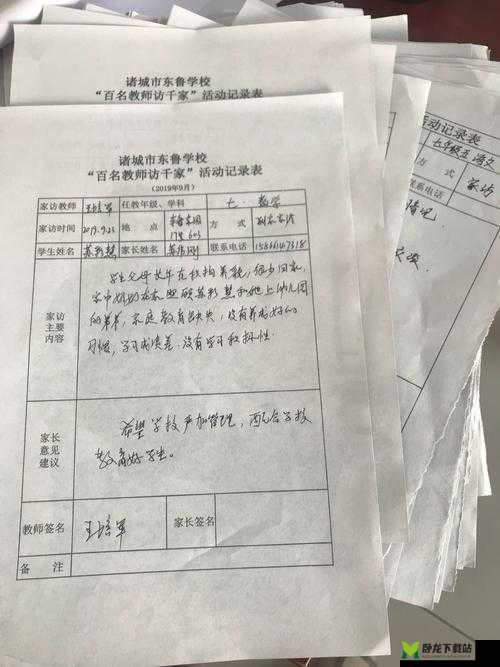 诸城市东鲁学校
“百名教师访千家”活动记录表
诸城市东鲁学校
“百名教师访千家”活动记录表
(2019年9月)
家访教师 王培军 任教年级、学科 七.数学
家访时间 2019.9.23 地点 方式
学生姓名 家长姓名 联系电话 15866147318
家访主要内容
学生父母长年在
家中奶奶 照顾 和她上幼儿园
的弟弟,家庭教育缺失,没有养成好的
习惯,学习成绩差.没有学习积极性.
家长意见建议
希望学校严加管理,配合学校
教育好学生。
教师签名 王培军 家长签名
备注
活动记录表
方式 家访
联系电话
情况
卧龙下载站